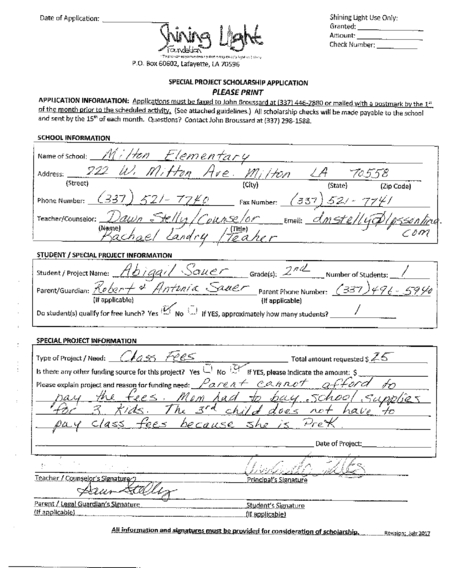 Date of Application:
Shining Light
Foundation
P.O. Box 60602, Lafayette, LA 70596
Shining Light Use Only:
Granted:
Amount:
Check Number:
SPECIAL PROJECT SCHOLARSHIP APPLICATION
PLEASE PRINT
APPLICATION INFORMATION: Applications must be faxed to John Broussard at (337) 446-2880 or mailed with a postmark by the 1st
of the month prior to the scheduled activity. (See attached guidelines.) All scholarship checks will be made payable to the school
and sent by the 15th of each month. Questions? Contact John Broussard at (337) 298-1588.
SCHOOL INFORMATION
Name of School: Milton Elementary
Address: 222 W. Milton Ave. Milton LA 70558
(Street) (City) (State) (Zip Code)
Phone Number: (337) 521-7740 Fax Number: (337) 521-7741
Teacher/Counselor: Dawn Stelly/Counselor Email: dmstelly@lpssonline.
(Name) (Title) com
Rachael Landry /Teaher
STUDENT / SPECIAL PROJECT INFORMATION
Student / Project Name: Abigail Sauer Grade(s): 2nd Number of Students: 1
Parent/Guardian: Robert & Antonia Sauer Parent Phone Number: (337) 496-5940
(If applicable) (If applicable)
Do student(s) qualify for free lunch? Yes No If YES, approximately how many students? 1
SPECIAL PROJECT INFORMATION
Type of Project / Need: Class Fees Total amount requested $ 25
Is there any other funding source for this project? Yes No If YES, please indicate the amount: $
Please explain project and reason for funding need: Parent cannot afford to
pay the fees. Mom had to buy school supplies
for 3 kids. The 3rd child does not have to
pay class fees because she is PreK.
Date of Project:
Teacher / Counselor's Signature
Principal's Signature
Dawn Stelly
Parent / Legal Guardian's Signature
(If applicable)
Student's Signature
(If applicable)
All information and signatures must be provided for consideration of scholarship.
Revision: July 2017